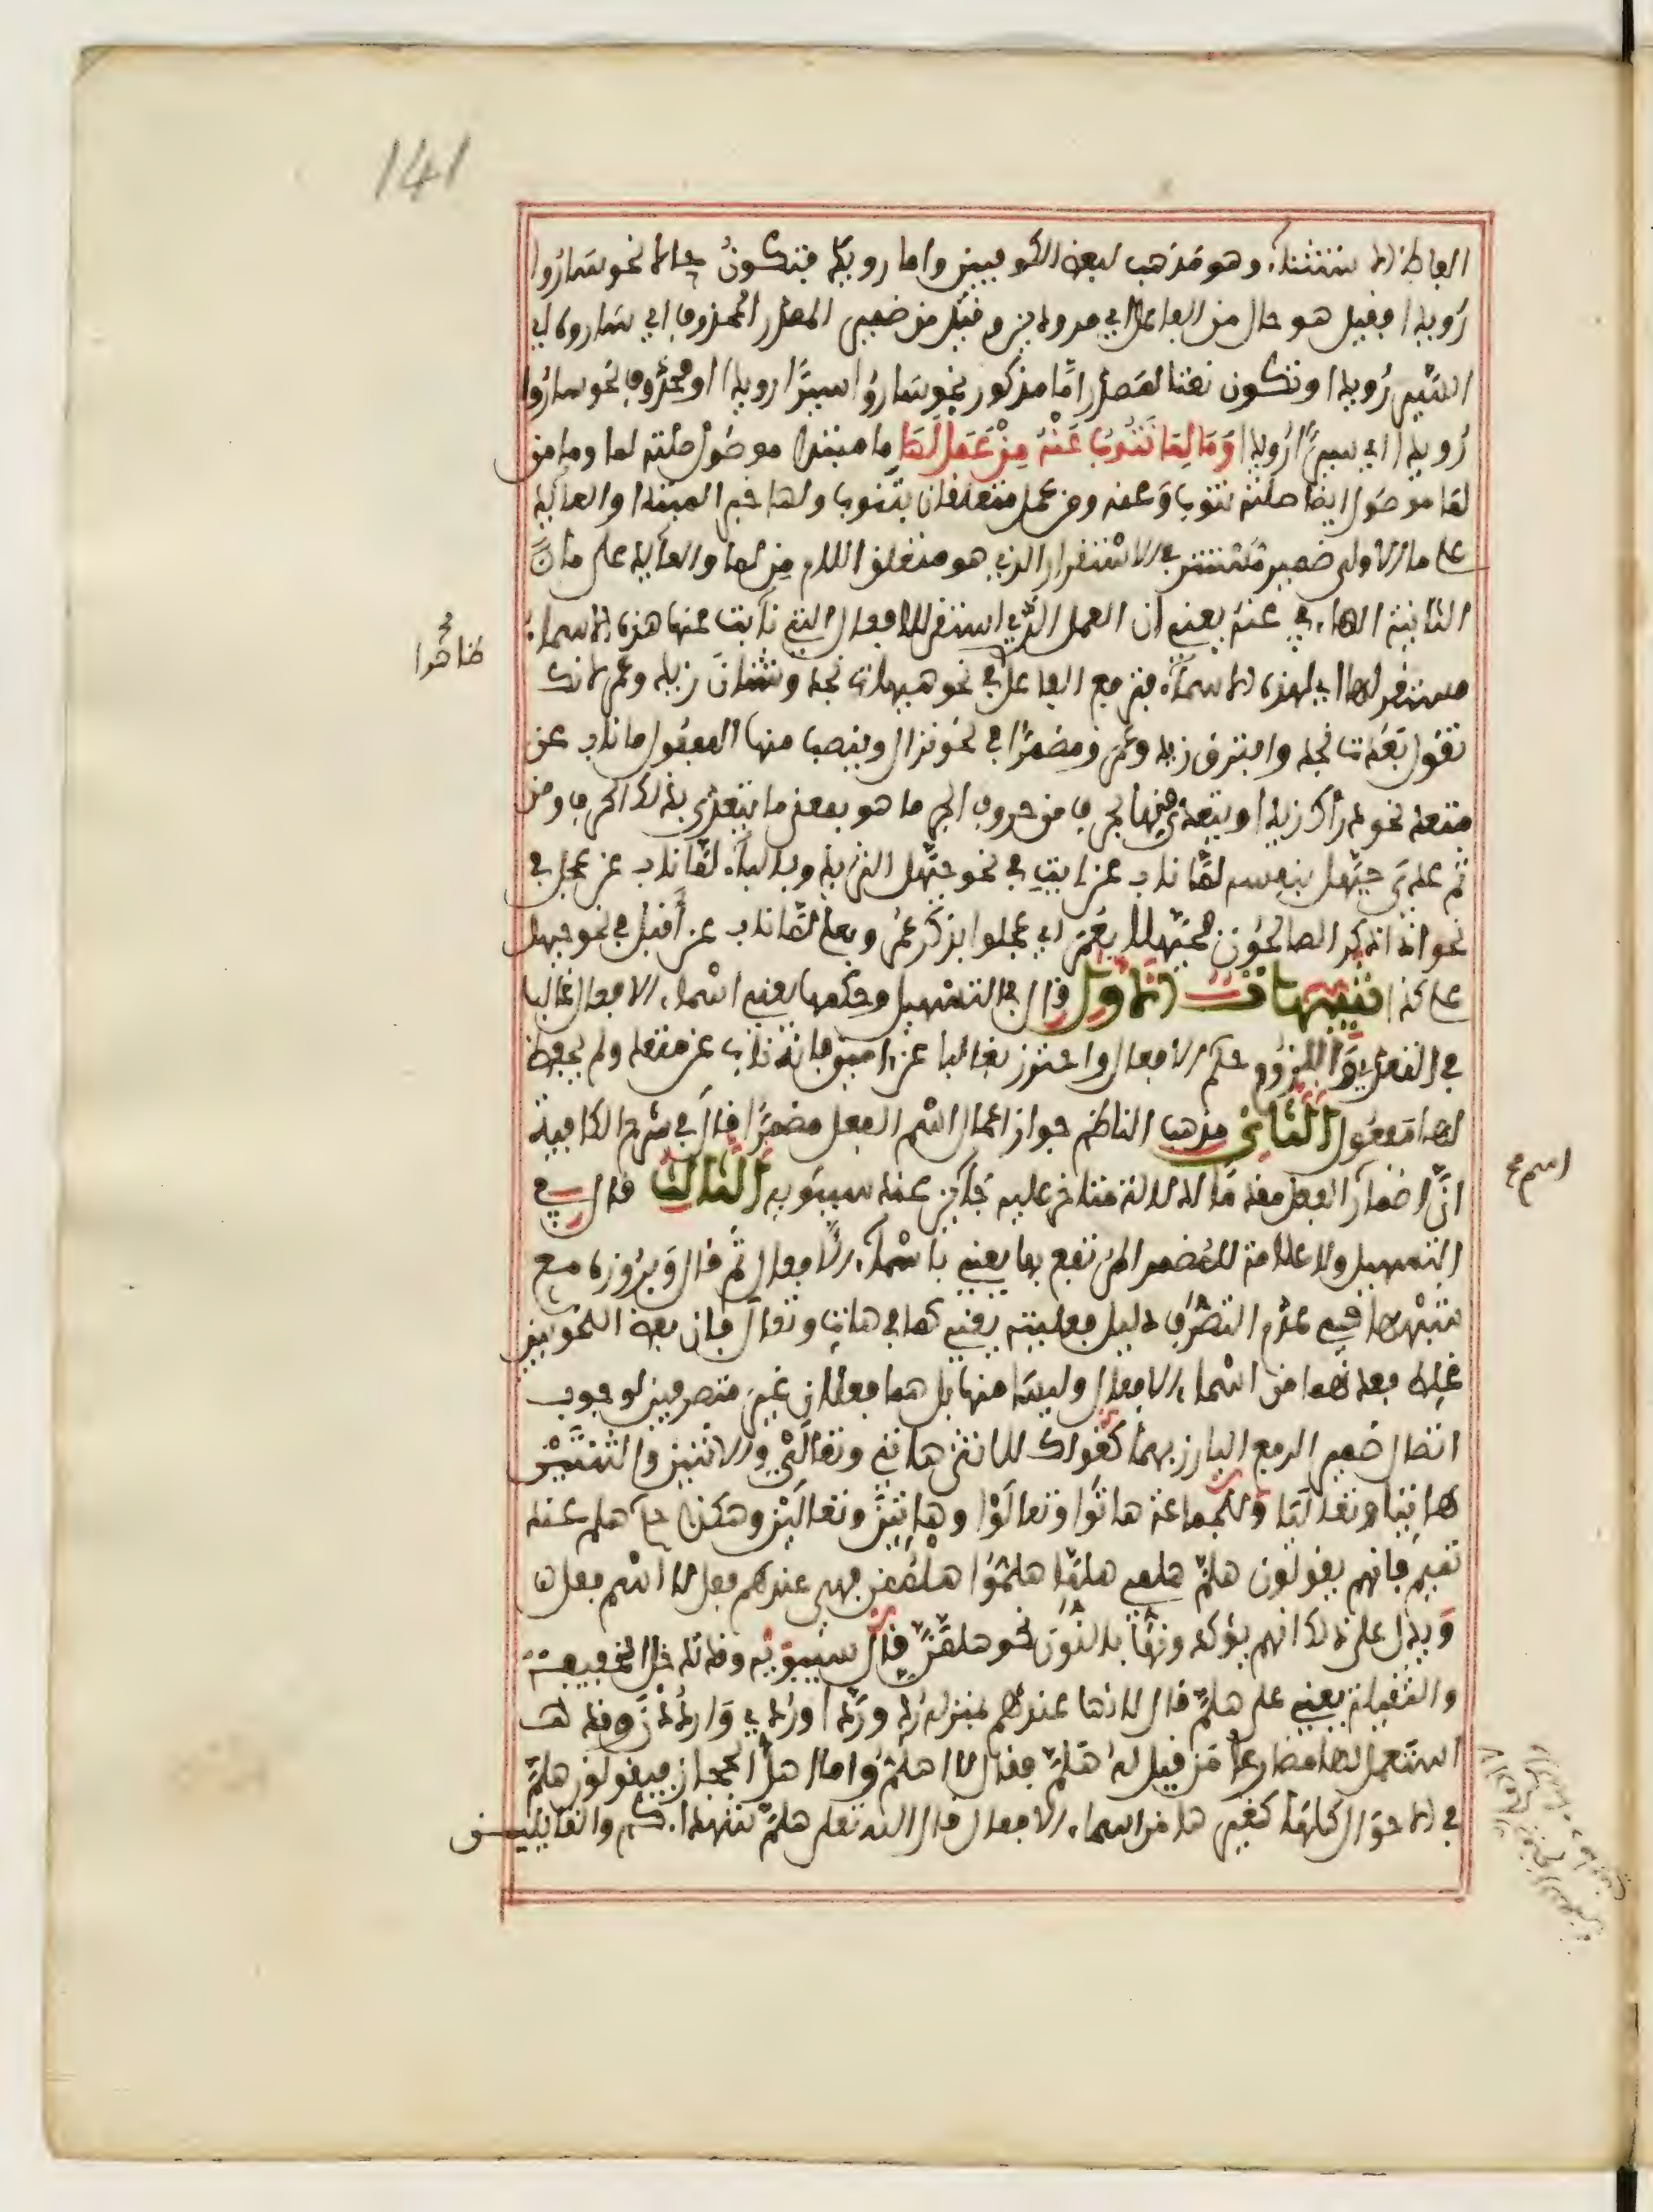 141
ألفاظ الاستثناء وهو مذهب لبعض الكوفيين واما رويدا فتكون حالا نحو ساروا
رويدا فقيل هو حال من الفاعل اي مرودين وقيل من ضمير المصدر المحذوف اي ساروه اي
السير رويدا وتكون نعتا لمصدر امّا مذكور نحو ساروا سيرًا رويدا او محذوف نحو ساروا
رويدا اي سيرًا رويدا وَمَا لِمَا تَنُوبُ عَنْهُ مِنْ عَمَلْ لَهَا ما مبتدا موصول صلته لما وما من
لما موصول ايضا صلته تنوب وعنه ومن عمل متعلقان بتنوب ولها خبر المبتدا والعائد
على ما الاولى ضمير مستتر في الاستقرار الذي هو متعلق اللام من لها والعائد على ما
الثانية الهاء في عنه يعني ان العمل الذي استقر للافعال التي نائبت عنها هذه الاسماء
ظاهرا صح
مستقر لها اي لهذه الاسماء فترفع الفاعل في نحو هيهات نجد وشتان زيد وعمرو لانك
تقول بعدت نجد وافترق زيد وعمرو ومضمرًا في نحو نزال وينصب منها المفعول ما ناب عن
متعد نحو دراك زيدا ويتعدى منها بحرف من حروف الجر ما هو بمعنى ما يتعدى بذلك الحرف ومن
ثم عدي حيّهل بنفسه لمّا ناب عن ايت في نحو حيّهل الثريد وبالباء لمّا ناب عن عجل في
نحو اذا ذكر الصالحون فحيّهلا بعمر اي عجلوا بذكر عمر وبعلى لمّا ناب عن أقبل في نحو حيهل
على كذا تنبيهات الاول قال في التسهيل وحكمها يعني اسماء الافعال غالبا
في التعدي واللزوم حكم الافعال واحترز بغالبا عن امين فانه ناب عن متعد ولم يحفظ
لها مفعول الثاني مذهب الناظم جواز اعمال اسم الفعل مضمرًا قال في شرح الكافية
اسم صح
انّ اضمار الفعل معه مّا لدلالة متاخر عليه جائز عند سيبويه الثالث قال في
التسهيل ولا علامة للمضمر المرتفع بها يعني باسماء الافعال ثم قال وبروزه مع
شبهها في عدم التصرف دليل فعليته يعني كما في هات وتعال فإن بعض النحويين
غلط فعدهما من اسماء الافعال وليسا منها بل هما فعلان غير متصرفين لوجوب
اتصال ضمير الرفع البارز بهما كقولك للانثى هاتي وتعالَيْ وللاثنين والثنتين
هاتيا وتعاليا وللجماعة هاتوا وتعالوا وهاتين وتعالين وهكذا حكم هلم عند
تميم فانهم يقولون هلمّ هلمي هلمّا هلمّوا هلممن فهي عندهم فعل لا اسم فعل
ويدل على ذلك انهم يؤكدونها بالنون نحو هلمّنّ قال سيبويه وقد تدخل الخفيفة
والثقيلة يعني على هلمّ قال لانها عندهم بمنزلة ردّ وردّا وردّي وارددن وقد
استعمل لها مضارعا من قيل له هلمّ فقال لا اهلمّ واما اهل الحجاز فيقولون هلمّ
في الاحوال كلها كغيرها من اسماء الافعال قال الله تعلى هلمّ شهداءكم والقائلين